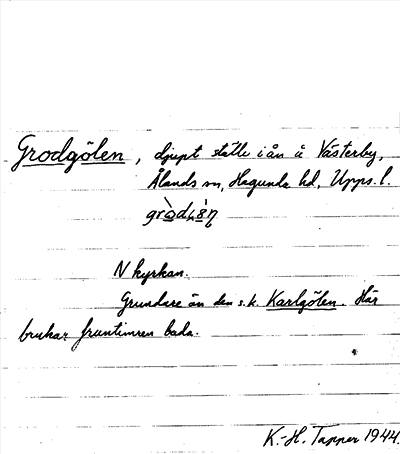 Grodgölen, djupt ställe i ån i Västerby,
Ålands sn, Hagunda hd, Upps. l.
N kyrkan.
Grundare än den s.k. Karlgölen. Här
brukar fruntimren bada.
K.-H. Tapper 1944.